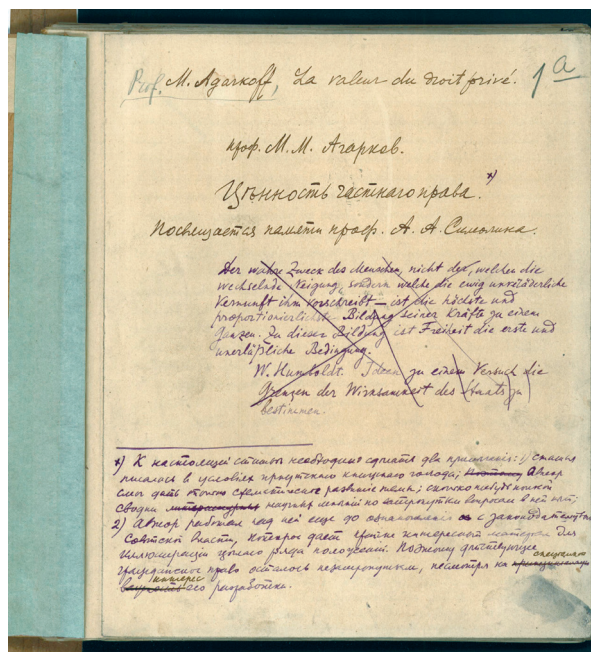 Prof. M. Agarkoff, La valeur du droit privé.
1 a
проф. М. М. Агарков.
Цѣнность частнаго права. х)
Посвящается памяти проф. А. А. Симолина.
Der wahre Zweck des Menschen, nicht der, welchen die
wechselnde Neigung, sondern welche die ewig unveränderliche
Vernunft ihm vorschreibt – ist die höchste und
proportionierlichste Bildung seiner Kräfte zu einem
Ganzen. Zu dieser Bildung ist Freiheit die erste und
unerläßliche Bedingung.
W. Humboldt. Ideen zu einem Versuch die
Grenzen der Wirksamkeit des Staats zu
bestimmen.
х) К настоящей статье необходимо сделать два примечания: 1) статья
писалась в условиях книжного голода; автор
смог дать только схематическое развитие темы;
сводки литературы научных по затронутым вопросам в ней нет;
2) Автор работал над ней еще до ознакомления с законодательством
Советской власти, которое дает крайне интересный материал для
иллюстрации целого ряда положений. Поэтому действующее
гражданское право осталось незатронутым, несмотря на специально
интерес его разработки.